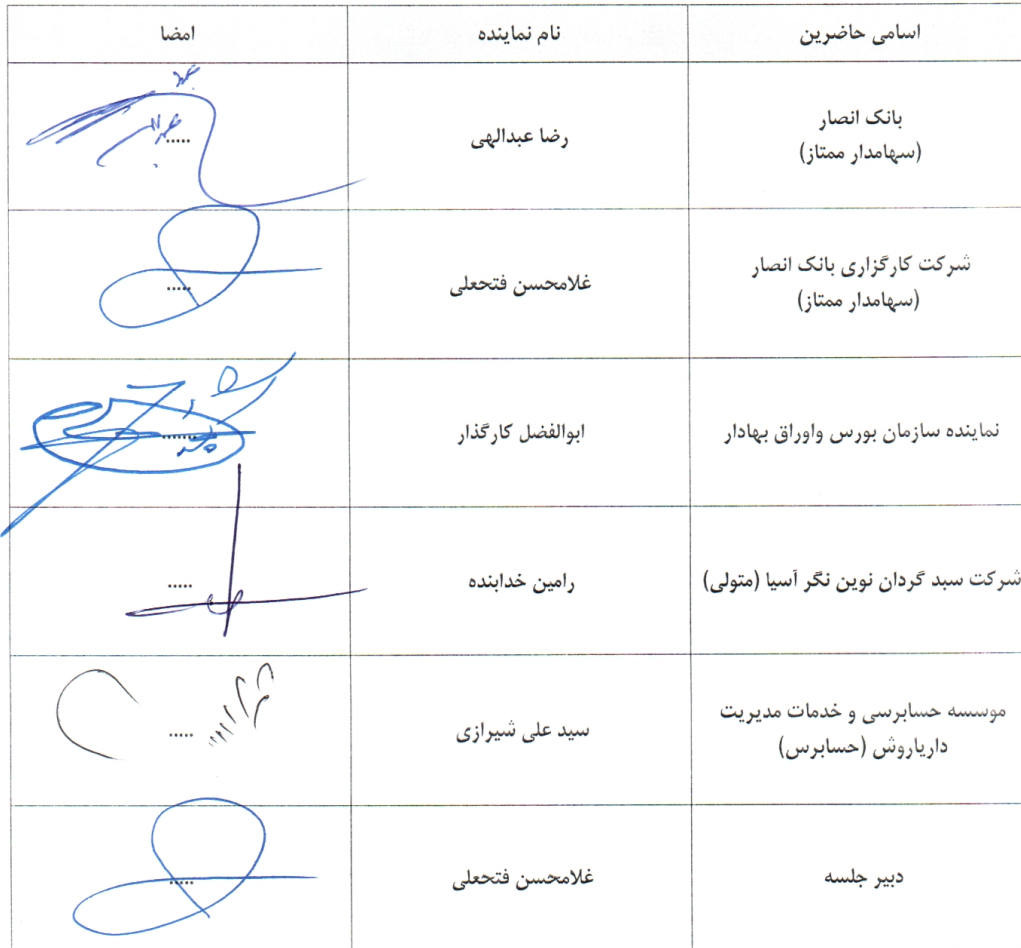 اسامی حاضرین	نام نماینده	امضا
بانک انصار
(سهامدار ممتاز)	رضا عبدالهی	.....
شرکت کارگزاری بانک انصار
(سهامدار ممتاز)	غلامحسن فتحعلی	.....
نماینده سازمان بورس واوراق بهادار	ابوالفضل کارگذار	.......
شرکت سبد گردان نوین نگر آسیا (متولی)	رامین خدابنده	.....
موسسه حسابرسی و خدمات مدیریت
داریاروش (حسابرس)	سید علی شیرازی	.....
دبیر جلسه	غلامحسن فتحعلی	.....